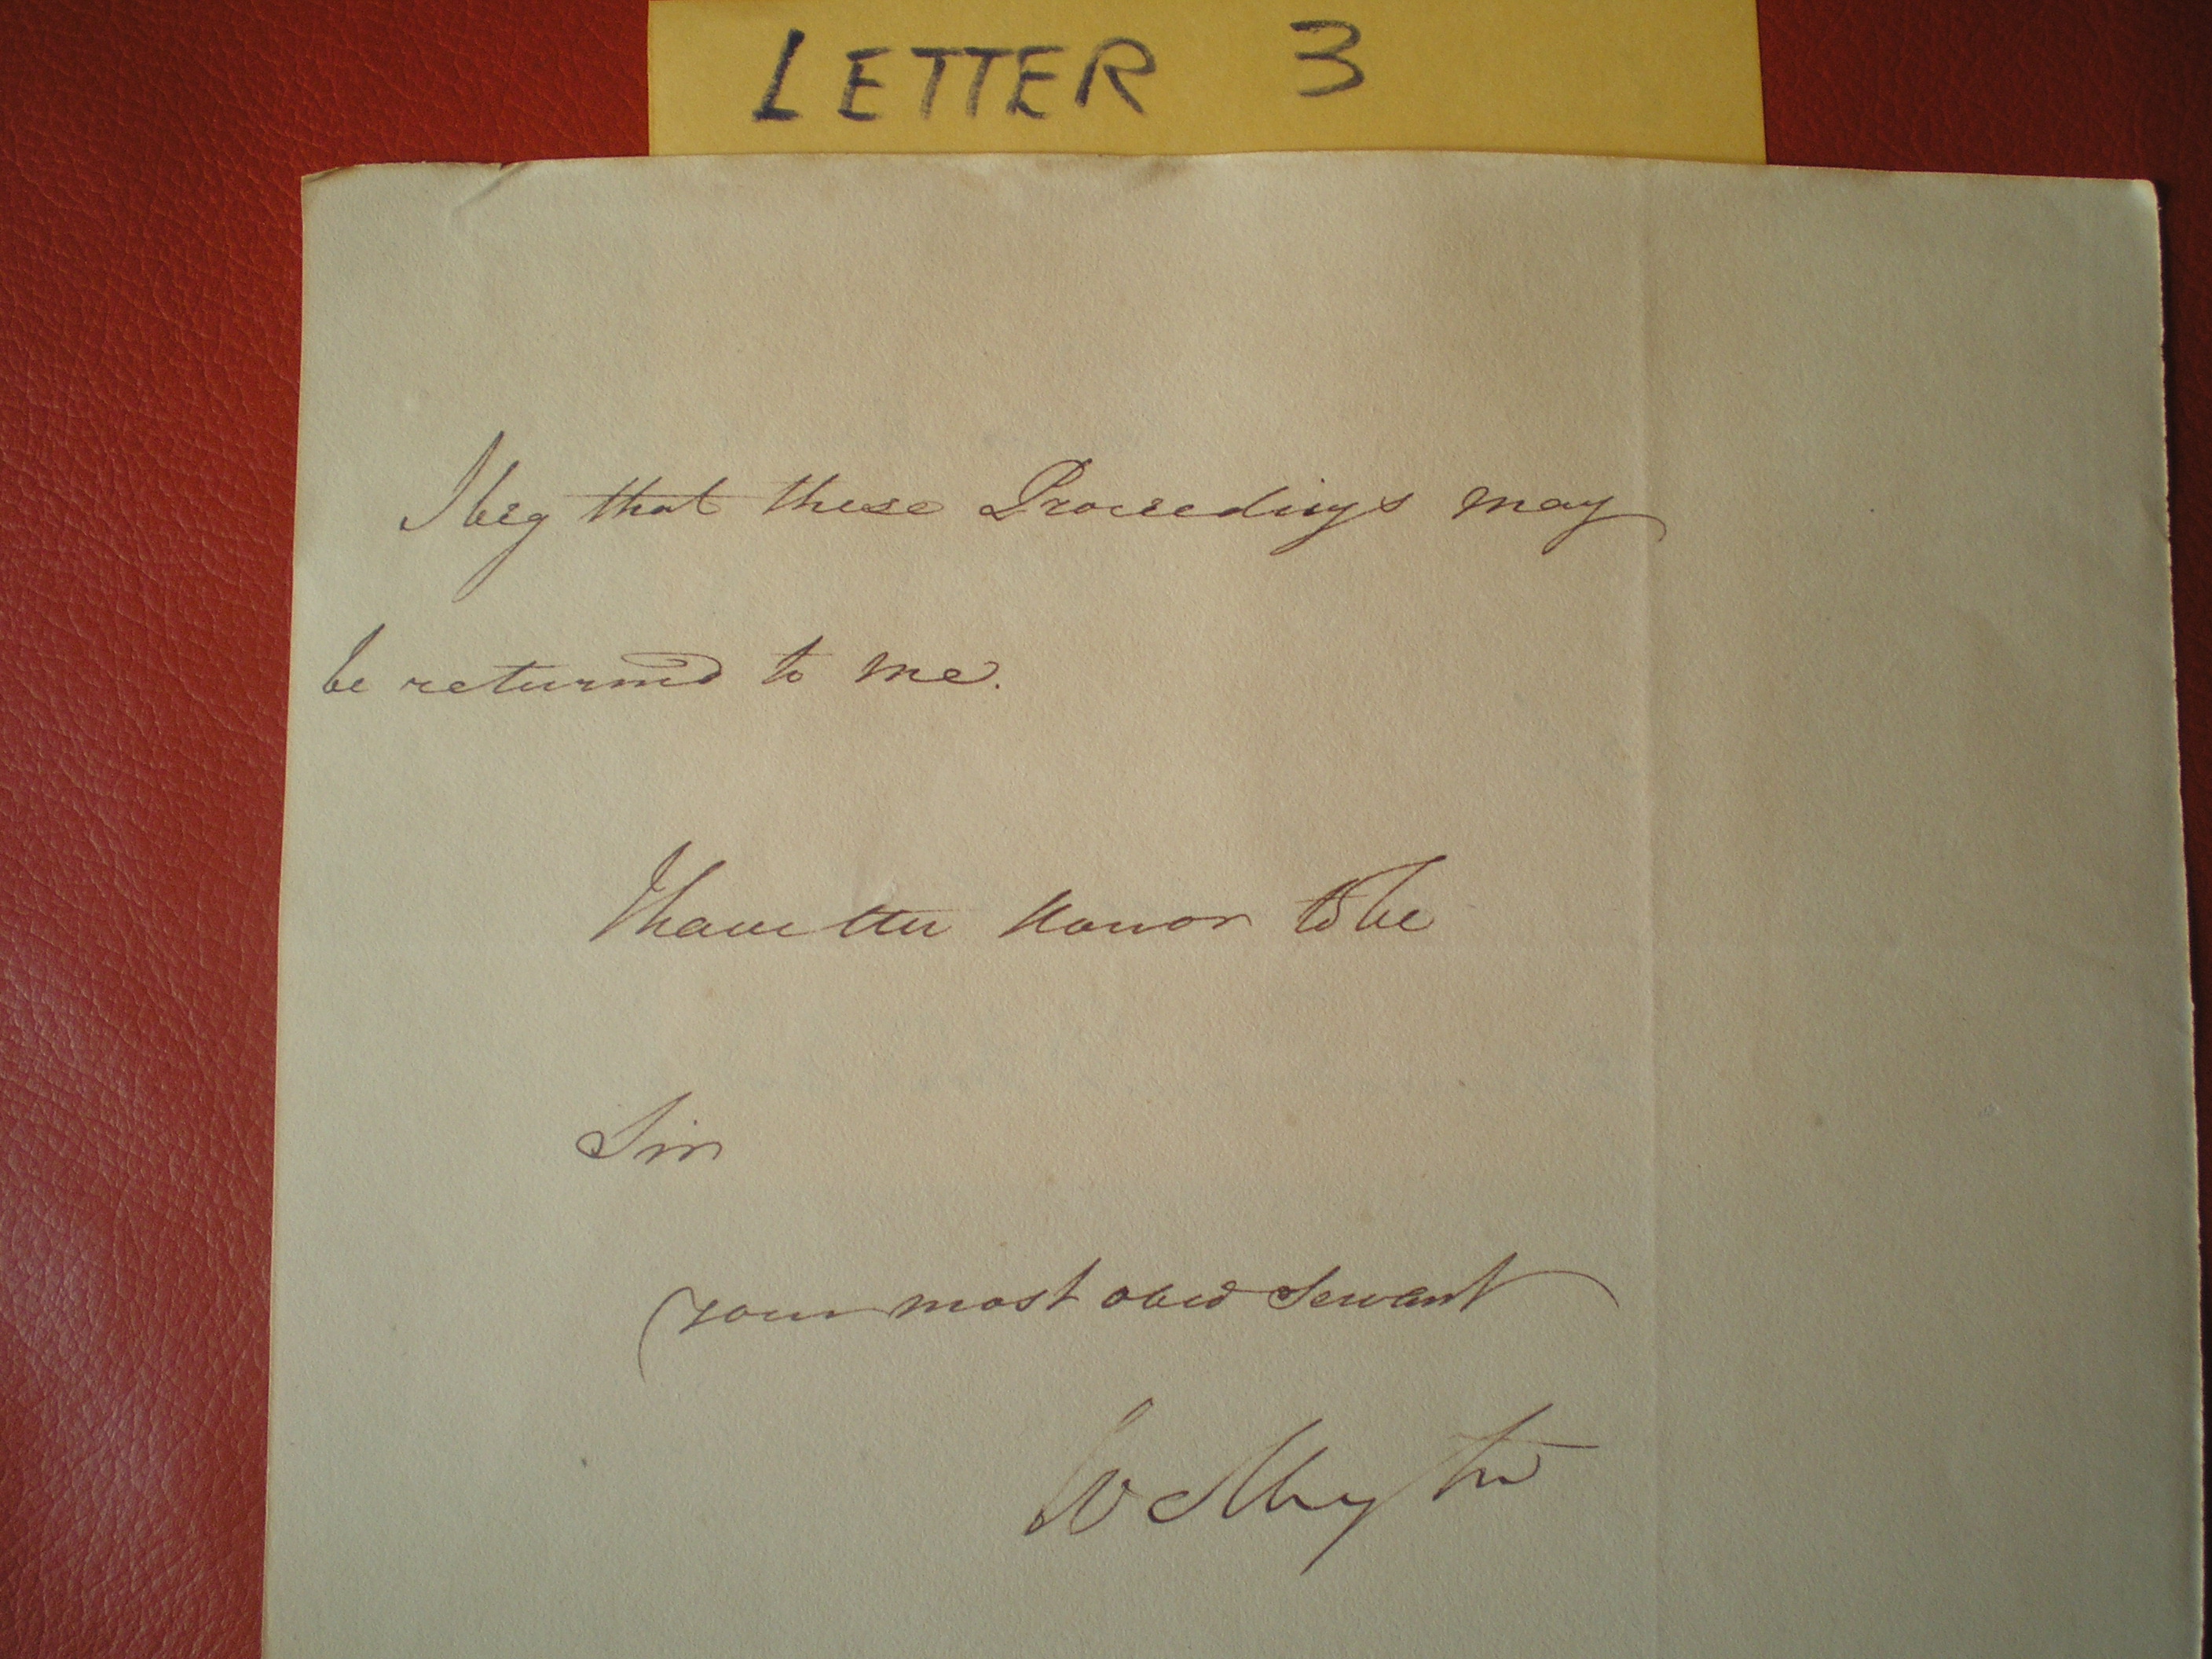 LETTER 3
I beg that these Proceedings may
be returned to me.
I have the honor to be
Sir
your most obed Servant
Wellington